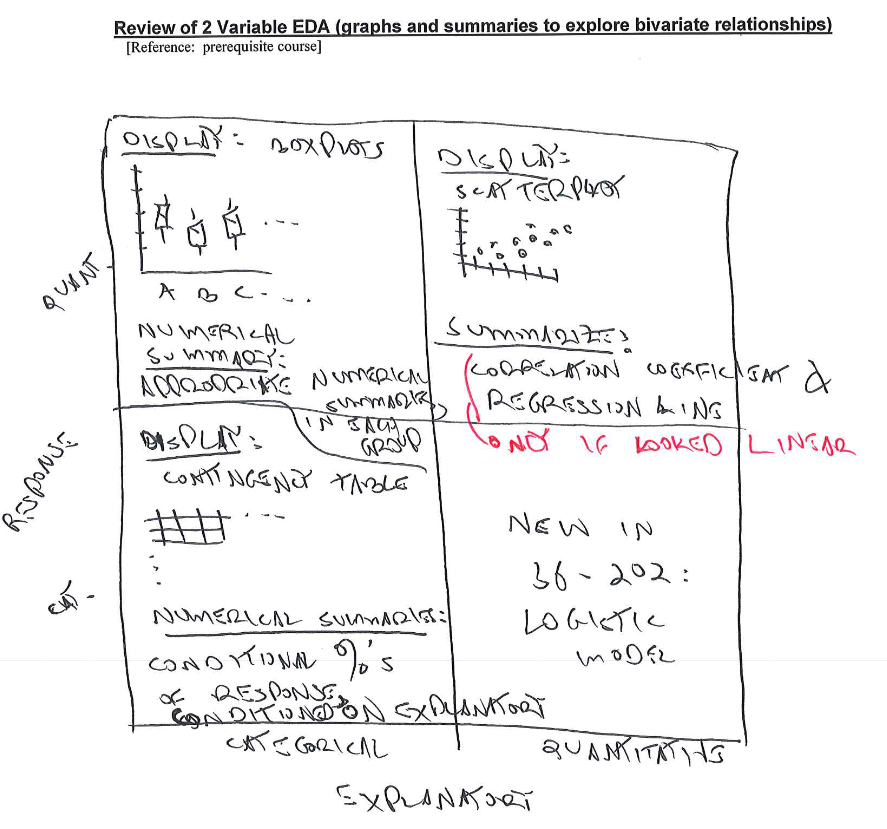 Review of 2 Variable EDA (graphs and summaries to explore bivariate relationships)
[Reference: prerequisite course]
DISPLAY: BOXPLOTS
A B C - . . .
NUMERICAL
SUMMARY:
APPROPRIATE NUMERICAL
SUMMARIES
IN EACH
GROUP
DISPLAY:
SCATTERPLOT
SUMMARIZE:
CORRELATION COEFFICIENT &
REGRESSION LINE
ONLY IF LOOKED LINEAR
QUANT-
RESPONSE
CAT -
DISPLAY:
CONTINGENCY TABLE
NUMERICAL SUMMARIES:
CONDITIONAL %'S
OF RESPONSE,
CONDITIONED ON EXPLANATORY
NEW IN
36-202:
LOGISTIC
MODEL
CATEGORICAL
QUANTITATIVE
EXPLANATORY